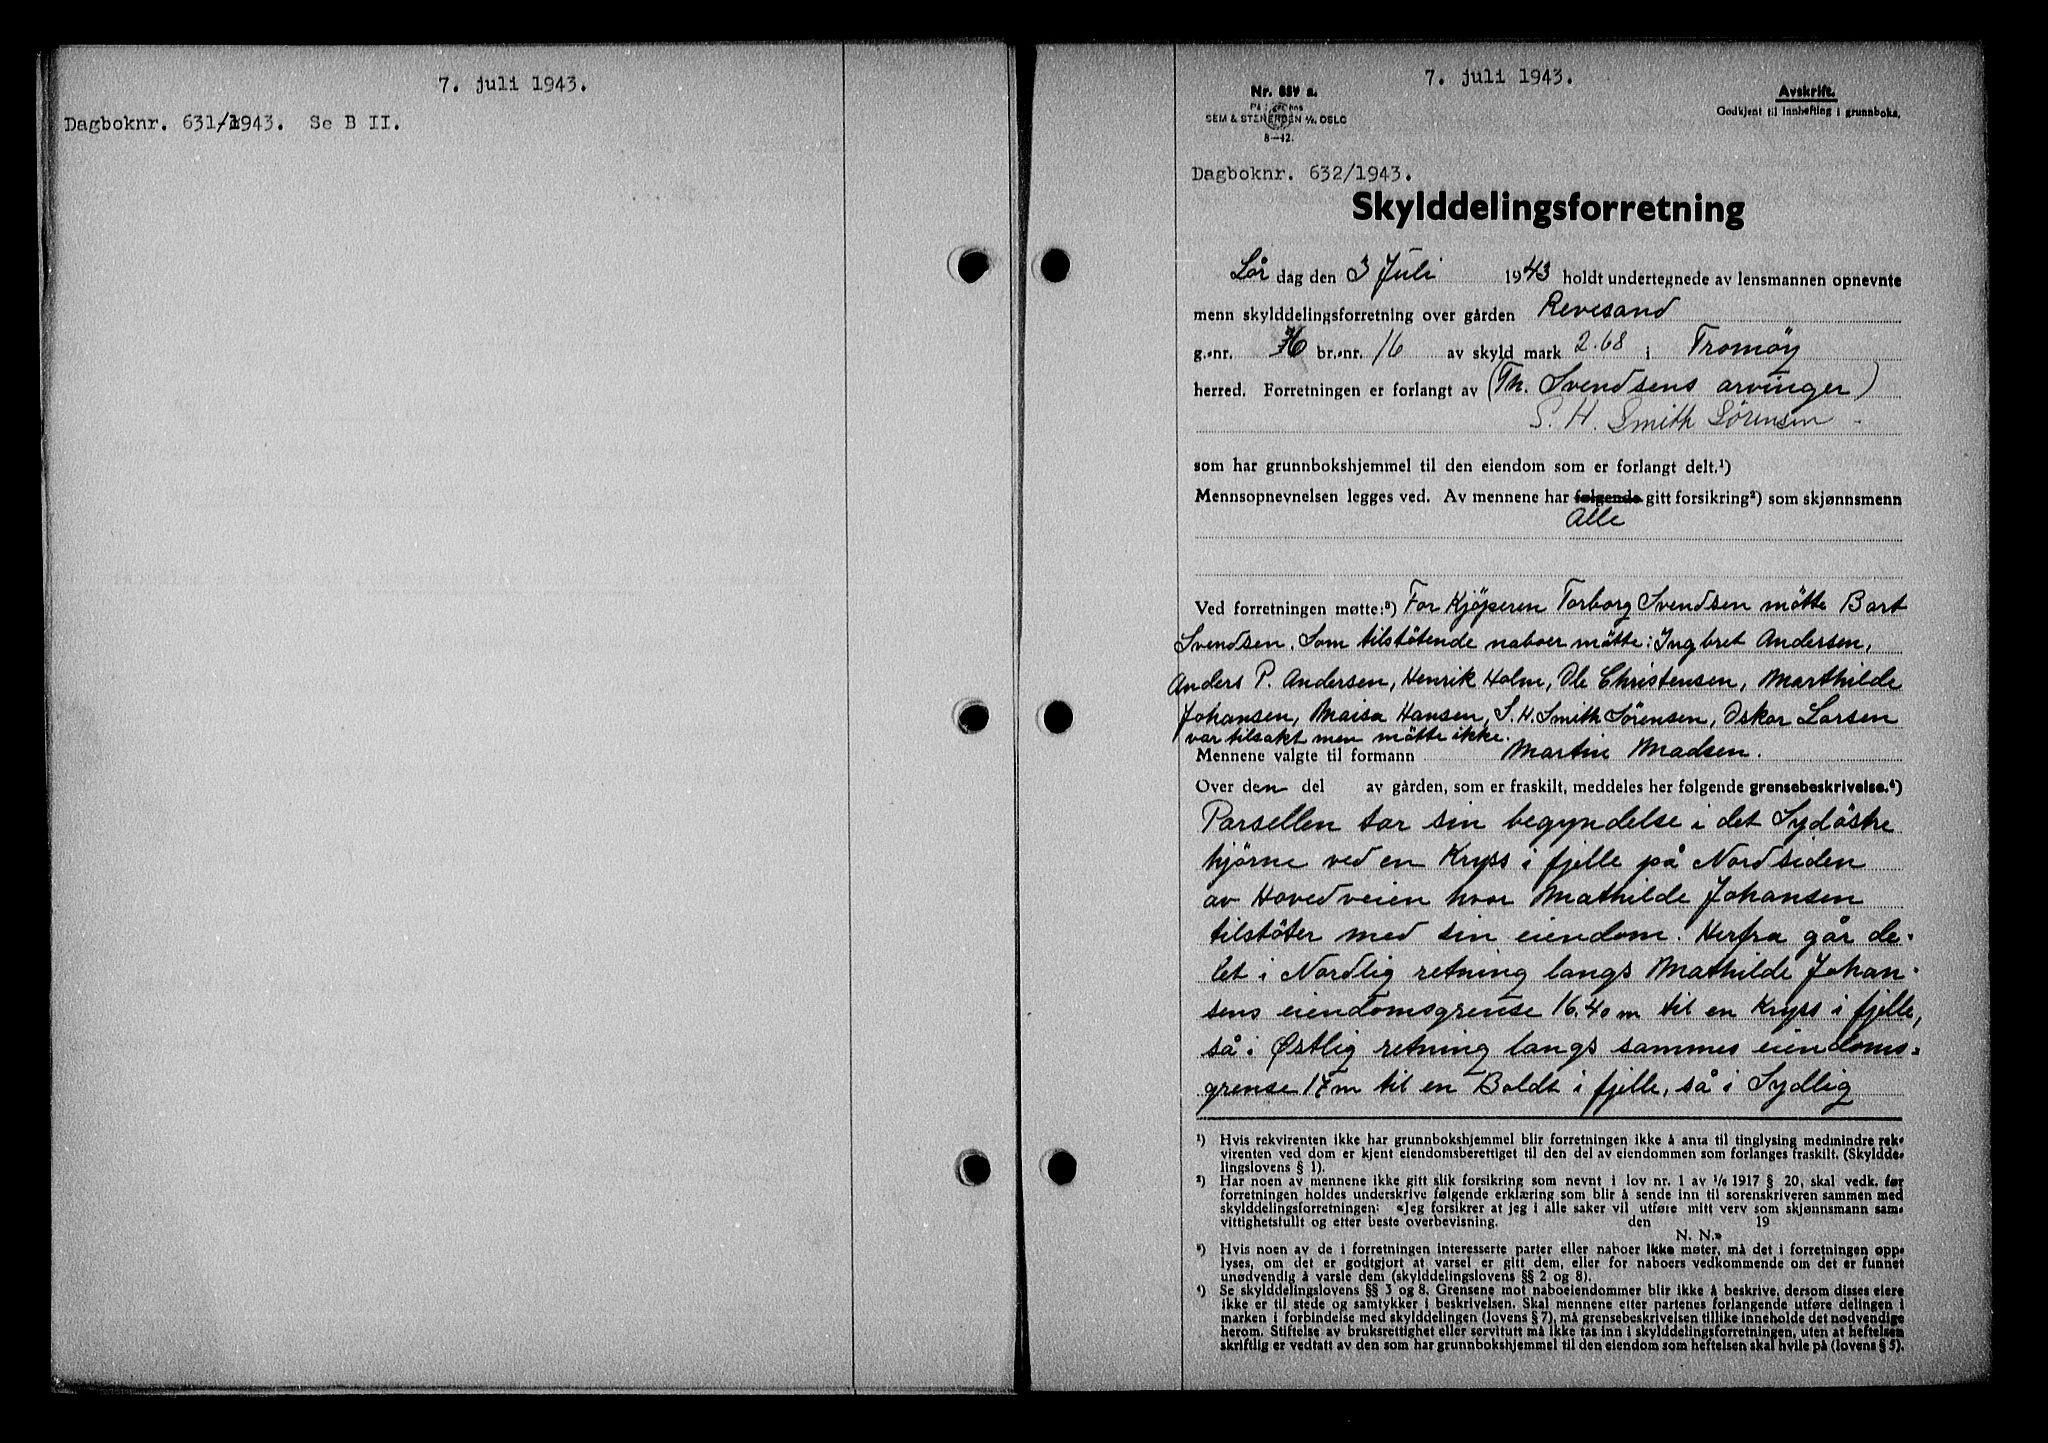 7. juli 1943.
Dagboknr. 631/1943. Se B II.
7. juli 1943.
Nr. 859 a.
SEM & STENERSEN A/S, OSLO
8-42.
Avskrift.
Godkjent til innhefting i grunnboka.
Dagboknr. 632/1943.
Skylddelingsforretning
Lør dag den 3 Juli 1943 holdt undertegnede av lensmannen opnevnte
menn skylddelingsforretning over gården Revesand
g.-nr. br.-nr. 16 av skyld mark 2.68 i Tromøy
herred. Forretningen er forlangt av (Th. Svendsens arvinger)
S. H. Smith Sørensen
som har grunnbokshjemmel til den eiendom som er forlangt delt.¹)
Mennsopnevnelsen legges ved. Av mennene har følgende gitt forsikring²) som skjønnsmenn
Alle
Ved forretningen møtte:³) For Kjöperen Torborg Svendsen mötte Bart
Svendsen. Som tilstötende naboer mötte: Ingbret Andersen,
Anders P. Andersen, Henrik Holm, Ole Christensen, Marthilde
Johansen, Maisa Hansen, S. H. Smith Sørensen, Oskar Larsen
var tilsakt men mötte ikke.
Mennene valgte til formann Martin Madsen.
Over den del av gården, som er fraskilt, meddeles her følgende grensebeskrivelse.⁴)
Parsellen tar sin begyndelse i det Sydöstre
hjörne ved en Kryss i fjelle på Nordsiden
av Hovedveien hvor Mathilde Johansen
tilstöter med sin eiendom. Herfra går de-
let i Nordlig retning langs Mathilde Johan-
sens eiendomsgrense 16.40 m til en Kryss i fjelle,
så i Østlig retning langs sammes eiendoms-
grense 17 m til en Boldt i fjelle, så i Sydlig
¹) Hvis rekvirenten ikke har grunnbokshjemmel blir forretningen ikke å anta til tinglysing medmindre rek-
virenten ved dom er kjent eiendomsberettiget til den del av eiendommen som forlanges fraskilt. (Skyldde-
lingslovens § 1).
²) Har noen av mennene ikke gitt slik forsikring som nevnt i lov nr. 1 av 1/6 1917 § 20, skal vedk. før
forretningen holdes underskrive følgende erklæring som blir å sende inn til sorenskriveren sammen med
skylddelingsforretningen: «Jeg forsikrer at jeg i alle saker vil utføre mitt verv som skjønnsmann sam-
vittighetsfullt og etter beste overbevisning. den 19
N. N.»
³) Hvis noen av de i forretningen interesserte parter eller naboer ikke møter, må det i forretningen opp-
lyses, om det er godtgjort at varsel er gitt dem, eller for naboers vedkommende om det er funnet
unødvendig å varsle dem (skylddelingslovens §§ 2 og 8).
⁴) Se skylddelingslovens §§ 3 og 8. Grensene mot naboeiendommer blir ikke å beskrive, dersom disses eiere
ikke er til stede og samtykker i beskrivelsen. Skal mennene etter partenes forlangende utføre delingen i
marken i forbindelse med skylddelingen (lovens § 7), må grensebeskrivelsen tillike inneholde det nødvendige
herom. Stiftelse av bruksrettighet eller servitutt må ikke tas inn i skylddelingsforretningen, uten at heftelsen
skriftlig er vedtatt av den som har grunnbokshjemmel til den eiendom som heftelsen skal hvile på (lovens § 5).